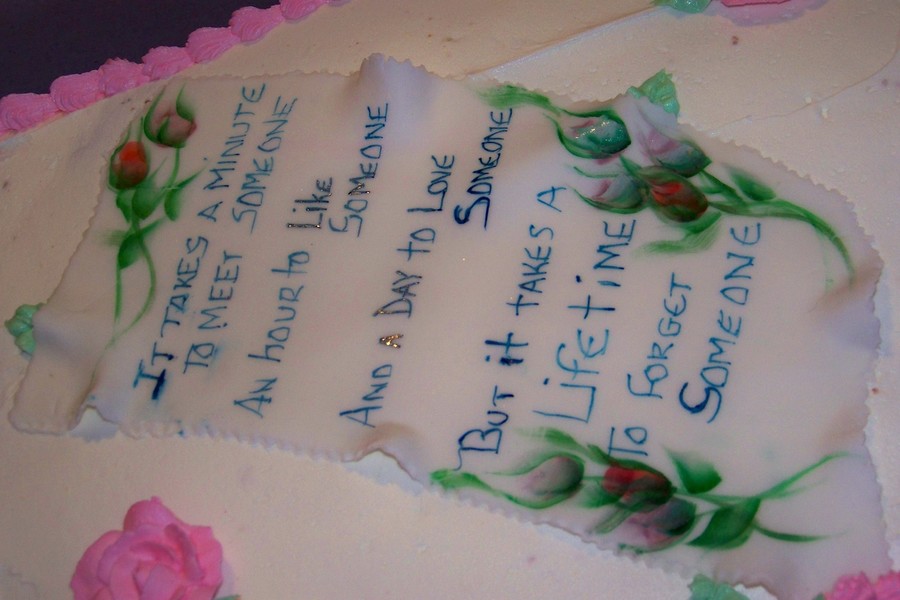 It TAKES A MINIUTE
TO MEET SOMEONE
AN hOUR to Like
SOMEONE
AND A DAY to LOVE
SOMEONE
BUT it tAKES A
LifetiME
TO fORGET
SOMEONE